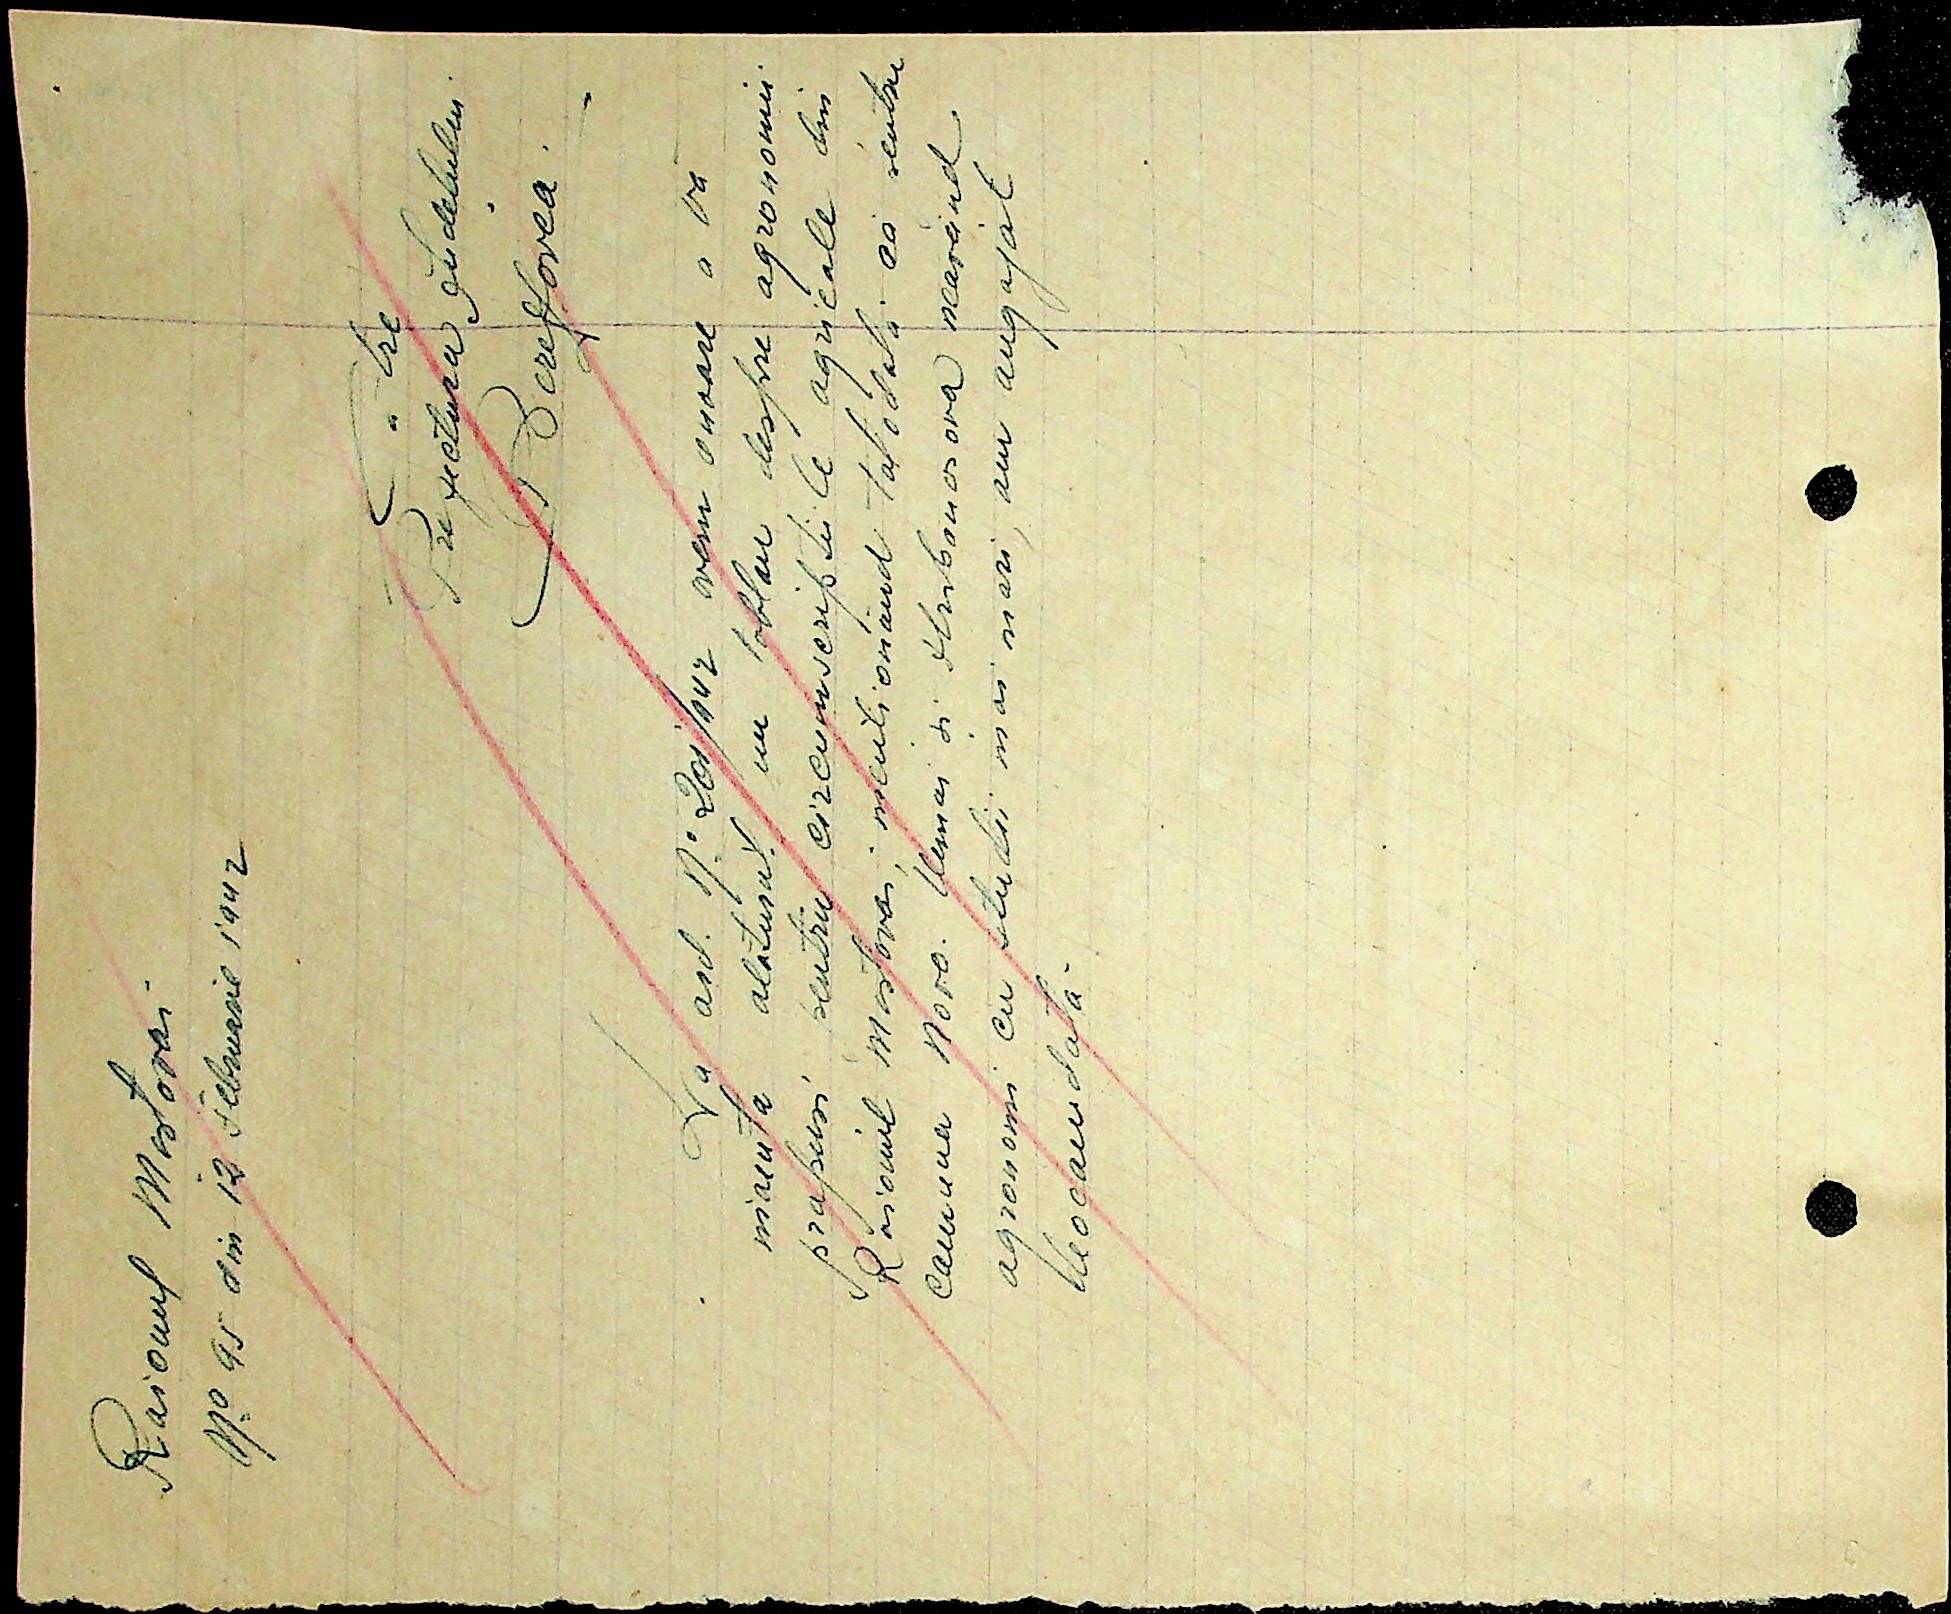 Raionul Mostovoi
No 95 din 12 Februarie 1942
Către
Prefectura Judetului
Berezovca.
La ord. No. 205/942 avem onoare a vă
inainta alaturat un tablou despre agronomii
propusi pentru circumscriptiile agricole din
Raionul Mostovoi, mentionând totodată că pentru
comuna Novo. si neavând
agronomi cu studii mai mari, am angajat
deocamdată